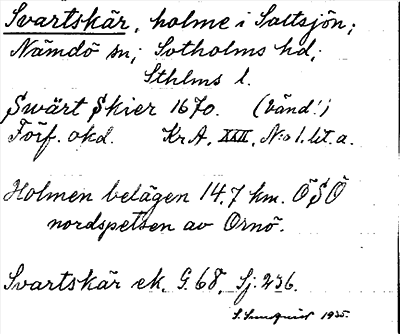 Svartskär, holme i Saltsjön;
Nämdö sn; Sotholms hd;
Sthlms l.
Swärt Skier 1670. (vänd!)
Förf. okd. KrA. XXII. N:o 1. lit. a.
Holmen belägen 14.7 km. ÖSÖ
nordspetsen av Ornö.
Svartskär ek. G. 68, Sj. 236.
1935.